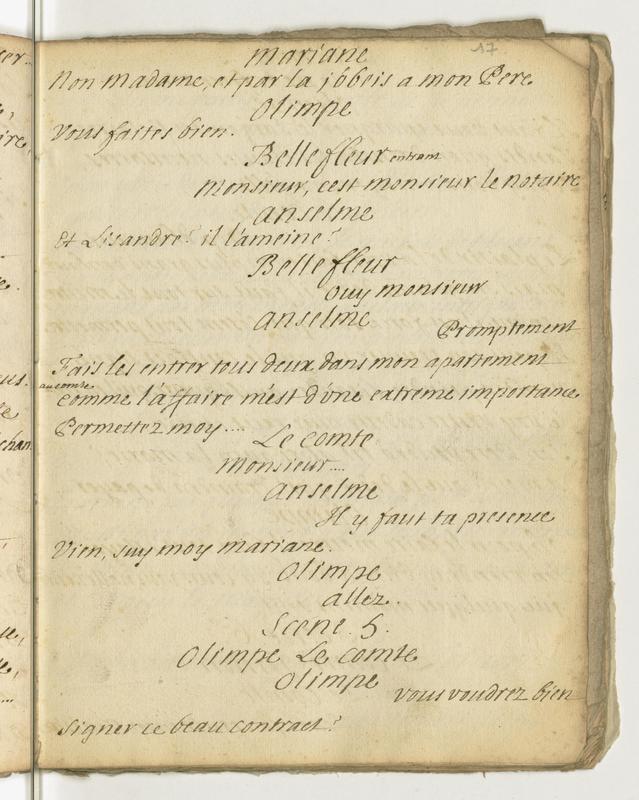 17
mariane
Non madame, et par la j'obeis a mon Pere
Olimpe
Vous faites bien.
Bellefleur entrant
Monsieur, c'est monsieur le notaire
anselme
Et Lisandre? il l'ameine?
Bellefleur
Ouy monsieur
anselme
Promptement
Fais les entrer tous deux dans mon apartement
au comte
comme l'affaire m'est d'vne extreme importance
Permettez moy....
Le comte
Monsieur....
anselme
Il y faut ta presence
Vien, suy moy mariane.
Olimpe
allez.
Scene. 5.
Olimpe Le comte
Olimpe
vous voudrez bien
signer ce beau contract?